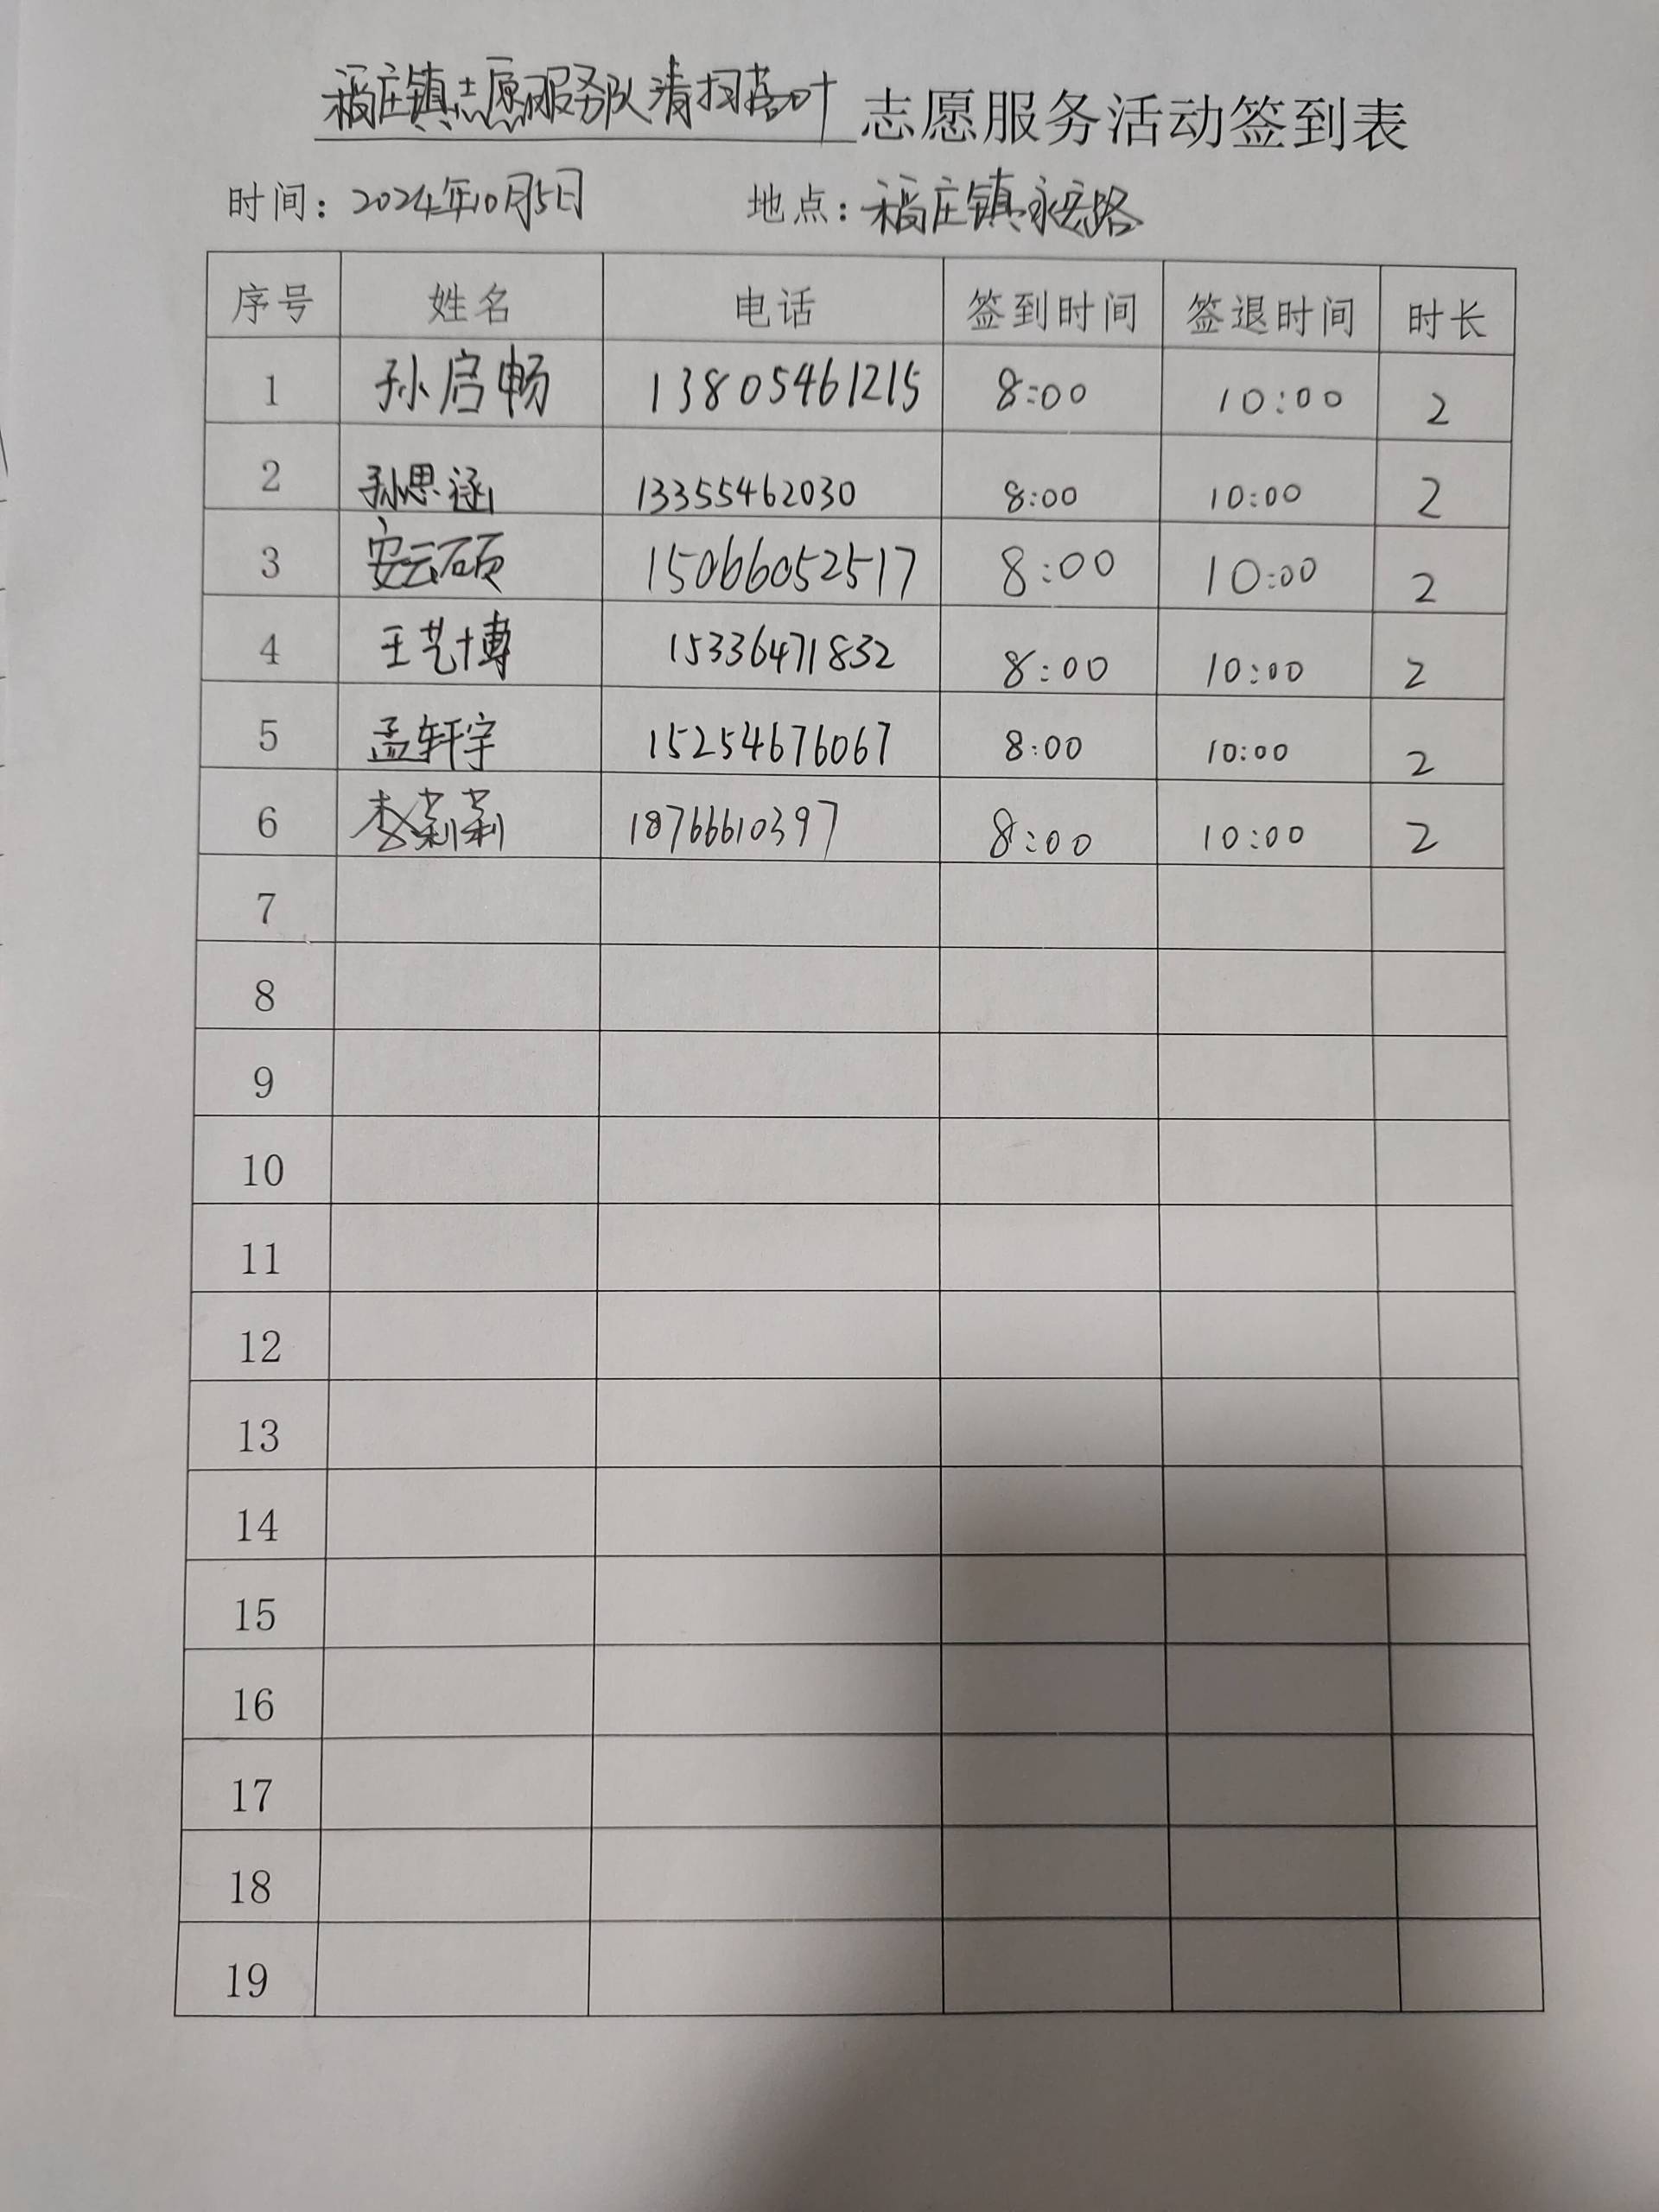 稻庄镇志愿服务队清扫落叶 志愿服务活动签到表
时间：2024年10月5日 地点：稻庄镇永宏路
序号 姓名 电话 签到时间 签退时间 时长
1 孙启畅 13805461215 8:00 10:00 2
2 孙思涵 13355462030 8:00 10:00 2
3 安云硕 15066052517 8:00 10:00 2
4 王艺博 15336471832 8:00 10:00 2
5 孟轩宇 15254676067 8:00 10:00 2
6 李莉莉 18766610397 8:00 10:00 2
7
8
9
10
11
12
13
14
15
16
17
18
19